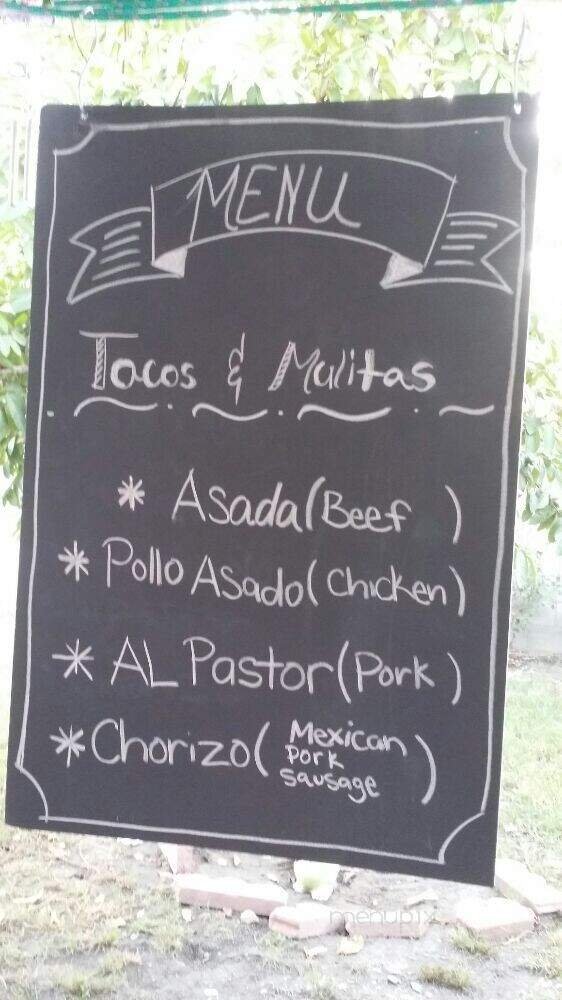 MENU
Tacos & Mulitas
* Asada (Beef )
* Pollo Asado (Chicken)
* AL Pastor (Pork )
* Chorizo ( Mexican
Pork
sausage )
menupix